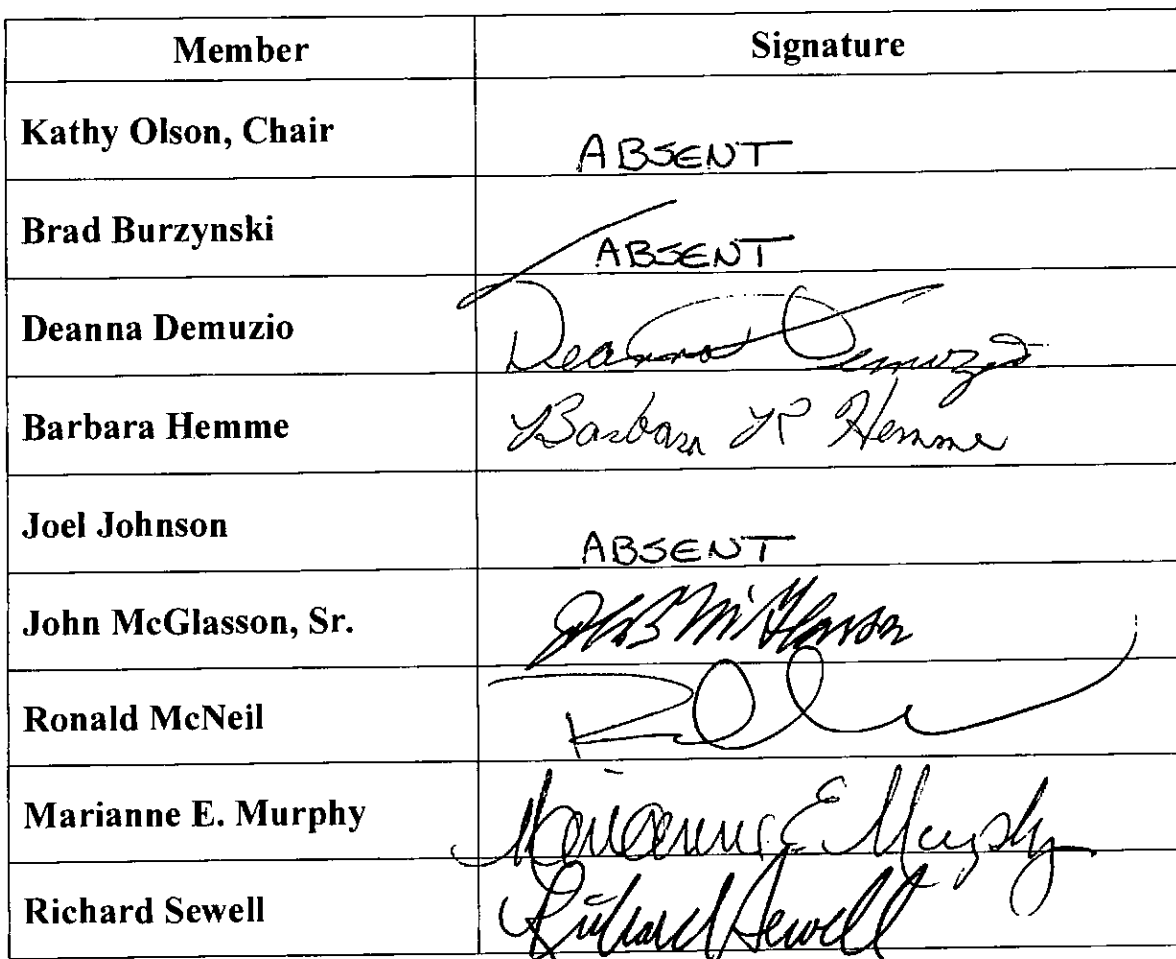 Member Signature
Kathy Olson, Chair ABSENT
Brad Burzynski ABSENT
Deanna Demuzio Deanna Demuzio
Barbara Hemme Barbara R Hemme
Joel Johnson ABSENT
John McGlasson, Sr. McGlasson
Ronald McNeil
Marianne E. Murphy Marianne E Murphy
Richard Sewell Richard Sewell